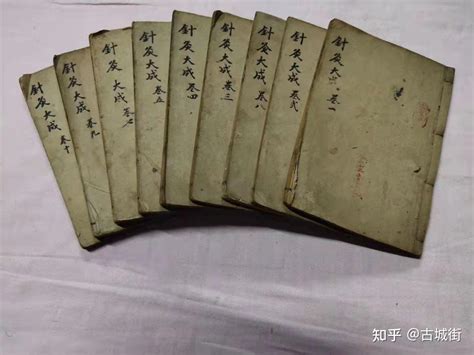 針灸大成 卷一
針灸大成 卷弍
針灸大成 卷八
針灸大成 卷三
針灸大成 卷四
針灸大成 卷五
針灸大成 卷七
針灸大成 卷九
針灸大成 卷十
知乎 @古城街